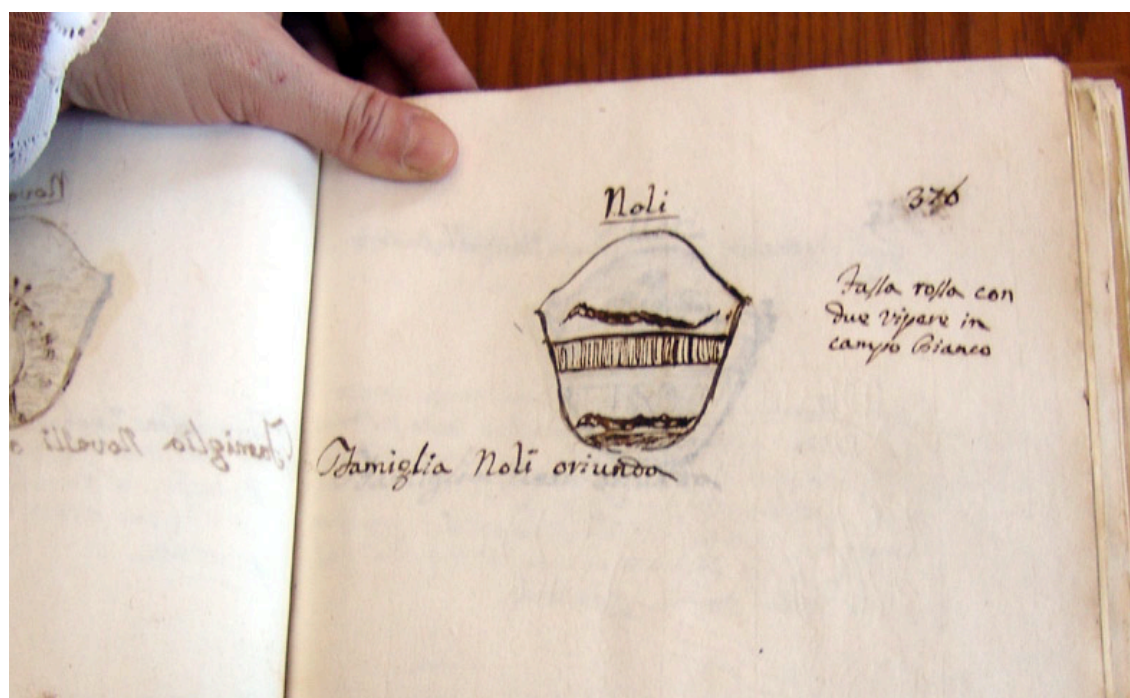 Noli
376
Fassa rossa con
due vipere in
campo bianco
Famiglia Noli oriunda
Famiglia Novelli